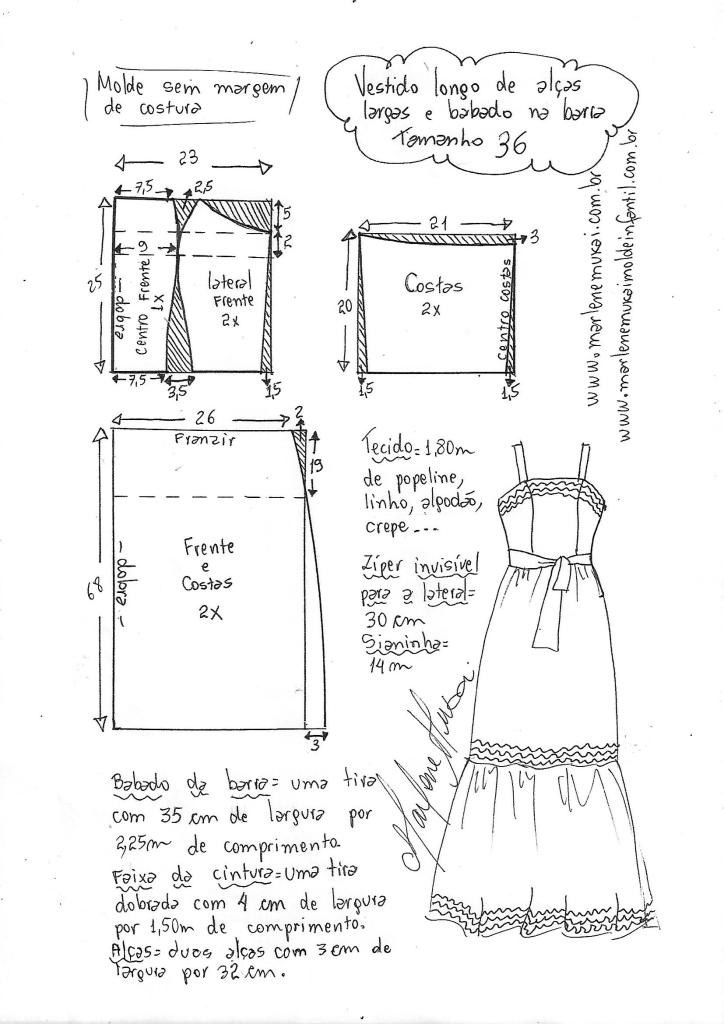 Molde sem margem
de costura
Vestido longo de alças
largas e babado na barra
Tamanho 36
www.marlenemukai.com.br
www.marlenemukaimoldeinfantil.com.br
23
7,5
2,5
5
2
9
25
dobra
Centro Frente
1x
lateral
Frente
2x
7,5
3,5
1,5
21
3
20
Costas
2x
centro costas
1,5
1,5
26
2
Franzir
19
68
dobra
Frente
e
Costas
2x
3
Tecido=1,80m
de popeline,
linho, algodão,
crepe...
Zíper invisível
para a lateral=
30 cm
Sianinha=
14m
Babado da barra= uma tira
com 35 cm de largura por
2,25m de comprimento.
Faixa da cintura=Uma tira
dobrada com 4 cm de largura
por 1,50m de comprimento.
Alças= duas alças com 3 cm de
largura por 32 cm.